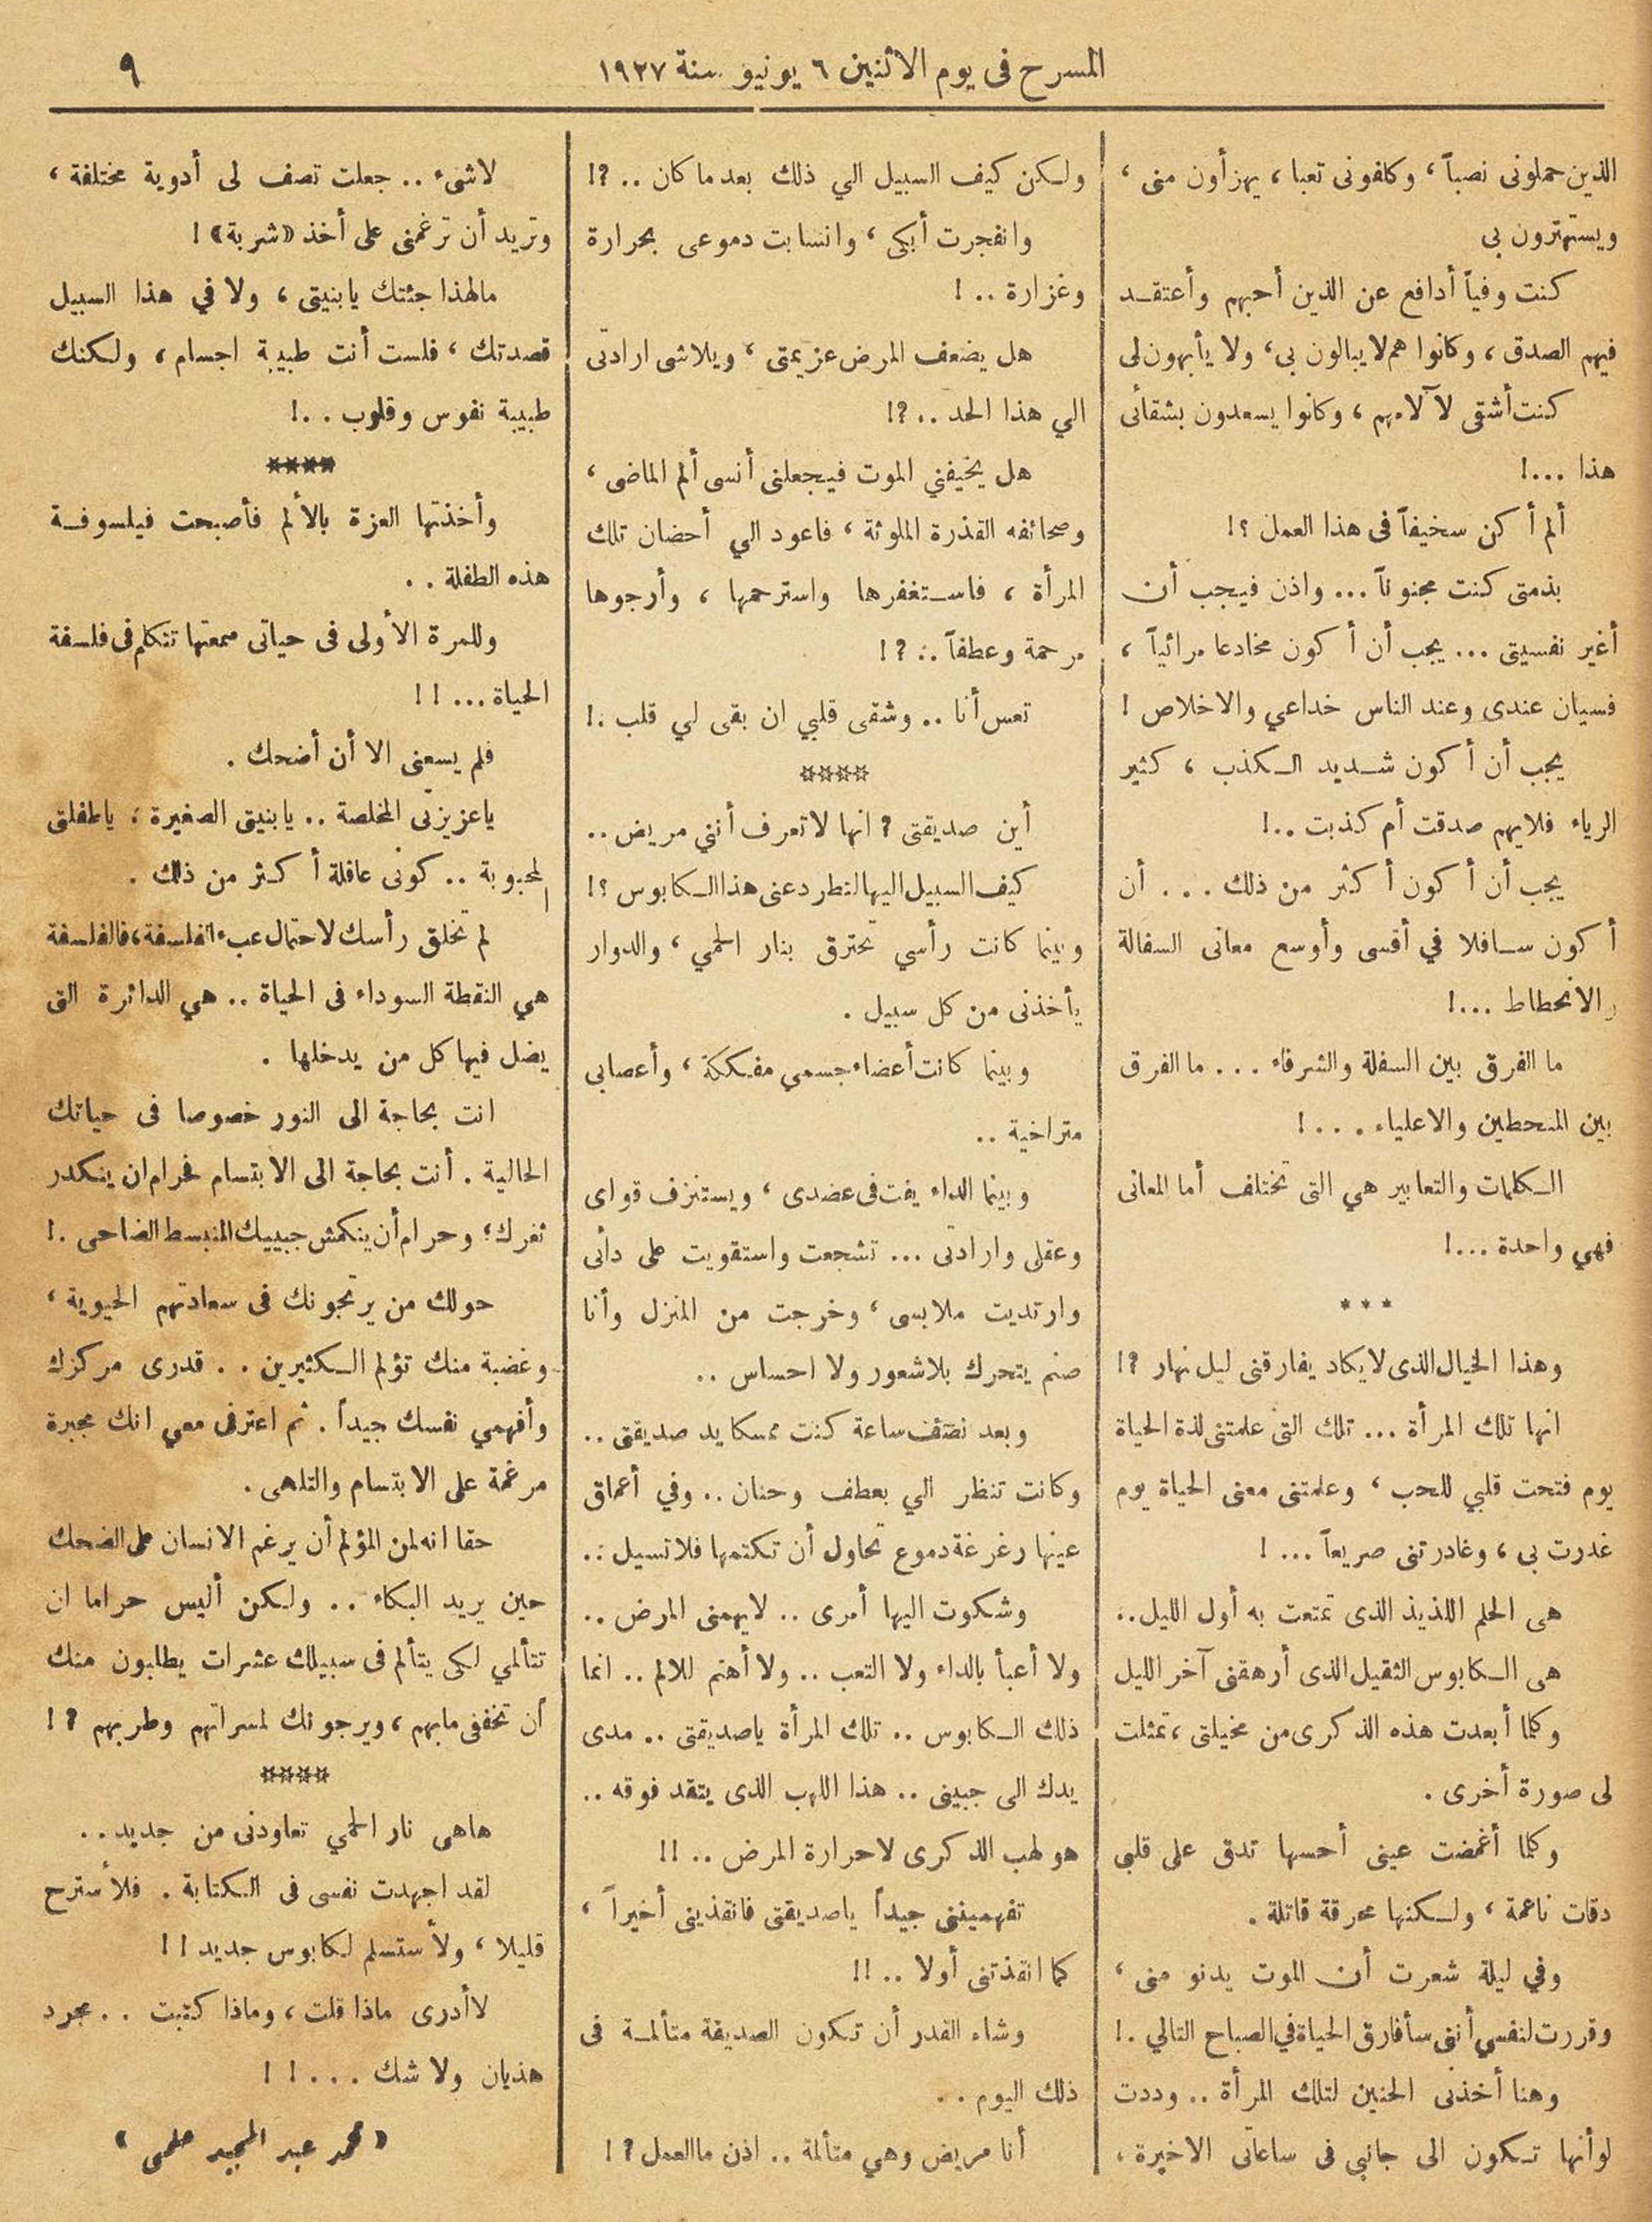 المسرح فى يوم الاثنين ٦ يونيو سنة ١٩٢٧
٩
الذين حملونى نصباً ، وكلفونى تعبا ، يهزأون منى ،
ويستهترون بى
كنت وفياً أدافع عن الذين أحبهم وأعتقد
فيهم الصدق ، وكانوا هم لا يبالون بى ، ولا يأبهون لى
كنت أشقى لآلامهم ، وكانوا يسعدون بشقائى
هذا ...!
ألم أكن سخيفاً فى هذا العمل ؟!
بذمتى كنت مجنوناً ... واذن فيجب أن
أغير نفسيتى ... يجب أن أكون مخادعا مرائياً ،
فسيان عندى وعند الناس خداعي والاخلاص !
يجب أن أكون شديد الكذب ، كثير
الرياء فلايهم صدقت أم كذبت ..!
يجب أن أكون أكثر من ذلك ... أن
أكون سافلا في أقسى وأوسع معانى السفالة
والانحطاط ...!
ما الفرق بين السفلة والشرفاء ... ما الفرق
بين المنحطين والاعلياء ....!
الكلمات والتعابير هي التى تختلف أما المعانى
فهي واحدة ...!
* * *
وهذا الخيال الذى لا يكاد يفارقنى ليل نهار ؟!
انها تلك المرأة ... تلك التى علمتنى لذة الحياة
يوم فتحت قلبي للحب ، وعلمتنى معنى الحياة يوم
غدرت بى ، وغادرتنى صريعاً ... !
هى الحلم اللذيذ الذى تمتعت به أول الليل ..
هى الكابوس الثقيل الذى أرهقنى آخر الليل
وكلما أبعدت هذه الذكرى من مخيلتى ، تمثلت
لى صورة أخرى .
وكلما أغمضت عينى أحسها تدق على قلبى
دقات ناعمة ، ولكنها محرقة قاتلة .
وفي ليلة شعرت أن الموت يدنو منى ،
وقررت لنفسي أننى سأفارق الحياة في الصباح التالي .!
وهنا أخذنى الحنين لتلك المرأة .. وددت
لو أنها تكون الى جانبى فى ساعاتى الاخيرة ،
ولكن كيف السبيل الي ذلك بعد ما كان ..؟!
وانفجرت أبكى ، وانسابت دموعى بحرارة
وغزارة .. !
هل يضعف المرض عزيمتى ، ويلاشى ارادتى
الي هذا الحد ..؟!
هل يخيفني الموت فيجعلنى أنسى ألم الماضى ،
وصحائفه القذرة الملوثة ، فاعود الي أحضان تلك
المرأة ، فاستغفرها واسترحمها ، وأرجوها
مرحمة وعطفاً ..؟!
تعس أنا .. وشقى قلبي ان بقى لي قلب .!
****
أين صديقتى ؟ انها لا تعرف أنني مريض ..
كيف السبيل اليها لتطرد عنى هذا الكابوس ؟!
وبينما كانت رأسي تحترق بنار الحمي ، والدوار
يأخذنى من كل سبيل .
وبينما كانت أعضاء جسمي مفككة ، وأعصابى
متراخية ..
وبينما الداء يفت فى عضدى ، ويستنزف قواى
وعقلى وارادتى ... تشجعت واستقويت على دائى
وارتديت ملابسى ، وخرجت من المنزل وأنا
صنم يتحرك بلا شعور ولا احساس ..
وبعد نصف ساعة كنت ممسكا يد صديقتى ..
وكانت تنظر الي بعطف وحنان .. وفي أعماق
عينها رغرغة دموع تحاول أن تكتمها فلا تسيل ..
وشكوت اليها أمرى .. لا يهمنى المرض ..
ولا أعبأ بالداء ولا التعب .. ولا أهتم للالم .. انما
ذلك الكابوس .. تلك المرأة يا صديقتى .. مدى
يدك الى جبينى .. هذا اللهب الذى يتقد فوقه ..
هو لهب الذكرى لا حرارة المرض .. !!
تفهميننى جيداً يا صديقتى فانقذينى أخيراً ،
كما انقذتنى أولا .. !!
وشاء القدر أن تكون الصديقة متألمة فى
ذلك اليوم ..
أنا مريض وهي متألمة .. اذن ما العمل ؟!
لاشىء .. جعلت تصف لى أدوية مختلفة ،
وتريد أن ترغمنى على أخذ «شربة» !
مالهذا جئتك يابنيتى ، ولا في هذا السبيل
قصدتك ، فلست أنت طبيبة اجسام ، ولكنك
طبيبة نفوس وقلوب ..!
****
وأخذتها العزة بالألم فأصبحت فيلسوفة
هذه الطفلة ..
وللمرة الأولى فى حياتى سمعتها تتكلم فى فلسفة
الحياة ... !!
فلم يسعنى الا أن أضحك .
ياعزيزتى المخلصة .. يابنيتى الصغيرة ، ياطفلتى
المحبوبة .. كونى عاقلة أكثر من ذلك .
لم تخلق رأسك لاحتمال عبء الفلسفة ، فالفلسفة
هي النقطة السوداء فى الحياة .. هي الدائرة التى
يضل فيها كل من يدخلها .
انت بحاجة الى النور خصوصا فى حياتك
الحالية . أنت بحاجة الى الابتسام فحرام ان ينكدر
ثغرك ، وحرام أن ينكمش جبينك المنبسط الضاحى .!
حولك من يرتجونك فى سعادتهم الحيوية ،
وغضبة منك تؤلم الكثيرين .. قدرى مركزك
وأفهمي نفسك جيداً . ثم اعترفى معي انك مجبرة
مرغمة على الابتسام والتلهى .
حقا انه لمن المؤلم أن يرغم الانسان على الضحك
حين يريد البكاء .. ولكن أليس حراما ان
تتألمي لكى يتألم فى سبيلك عشرات يطلبون منك
أن تخففى مابهم ، ويرجونك لمسراتهم وطربهم ؟!
****
هاهى نار الحمي تعاودنى من جديد ..
لقد اجهدت نفسى فى الكتابة . فلأسترح
قليلا ، ولأستسلم لكابوس جديد !!
لا أدرى ماذا قلت ، وماذا كتبت .. مجرد
هذيان ولا شك ... !!
«محمد عبد المجيد حلمى»